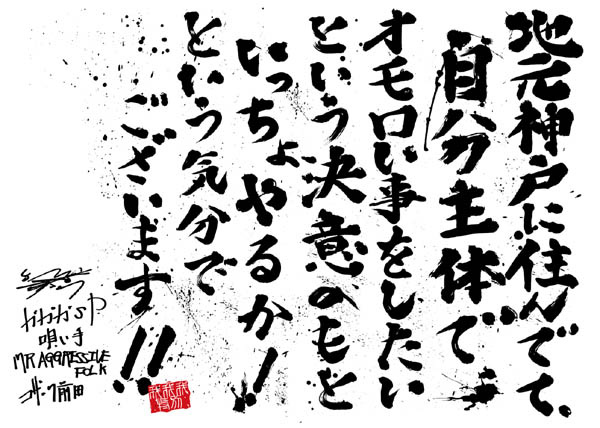 地元神戸に住んでて、
自分主体で
オモロい事をしたい
という決意のもと
いっちょやるか！
という気分で
ございます!!
ガガガSP
唄い手
MR AGGRESSIVE
FOLK
コザック前田